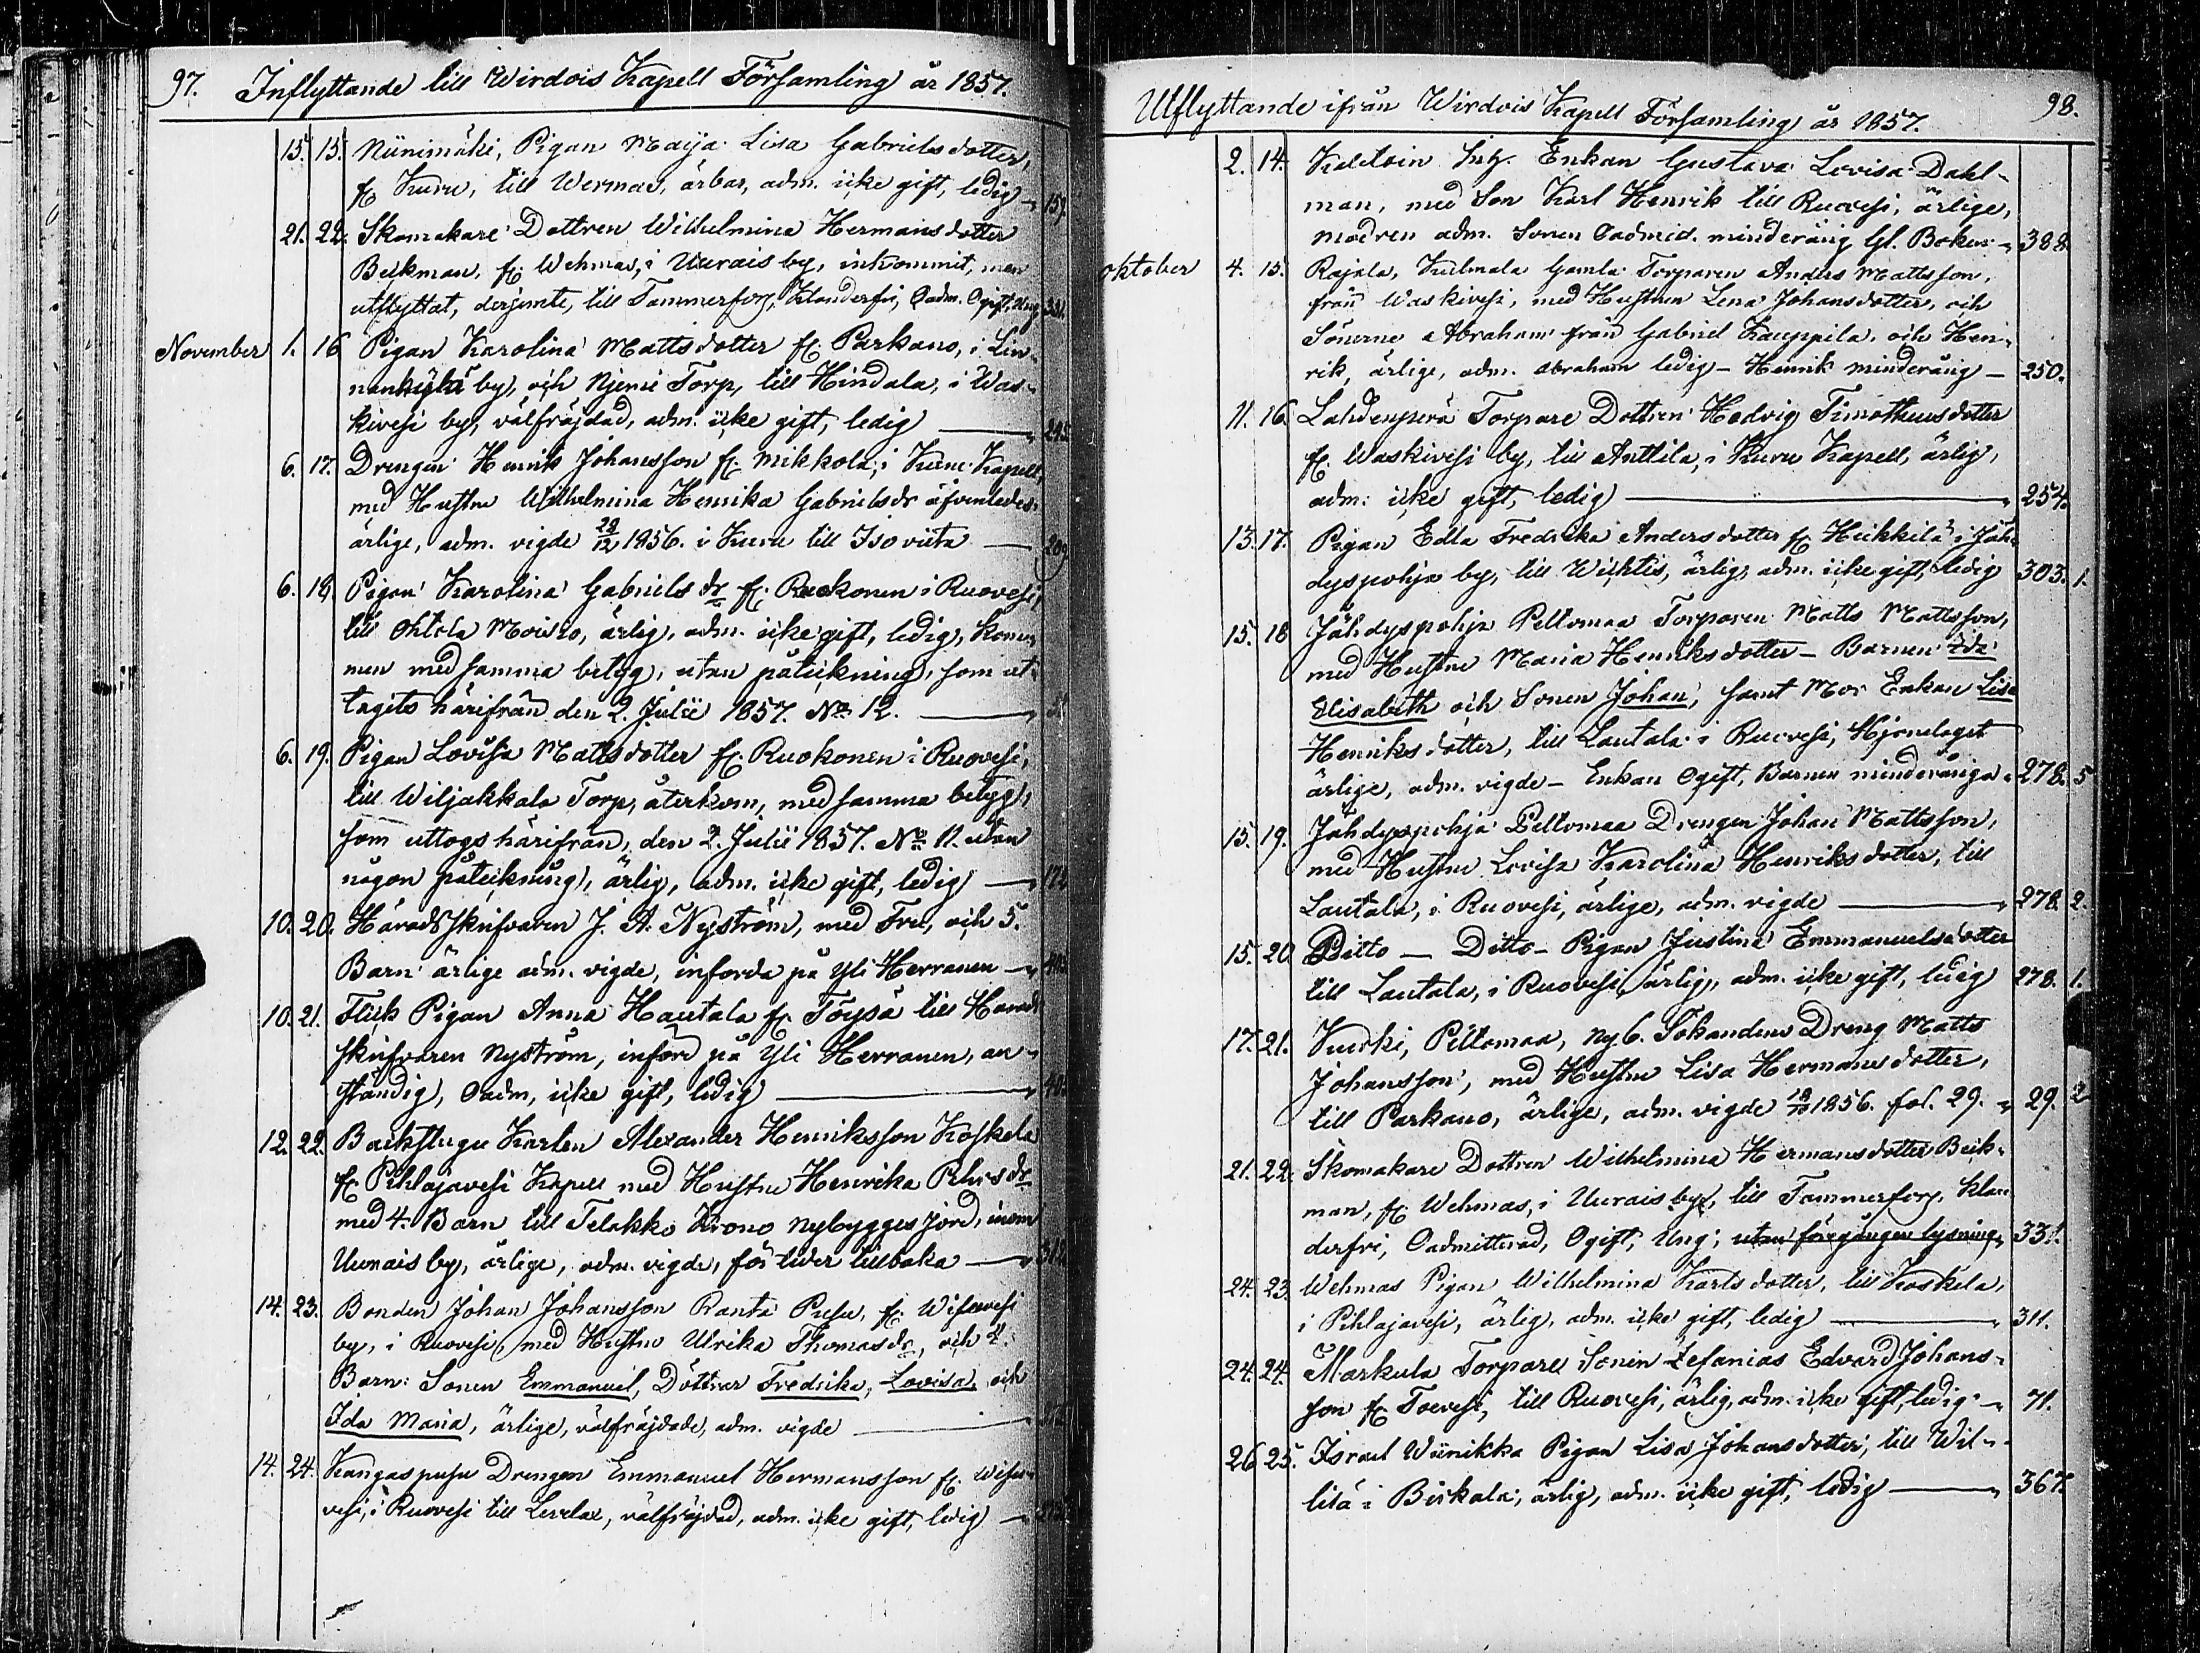 97. Inflyttande till Wirdois Kapell Församling år 1857.
15. 15. Niinimäki, Pigan Maija Lisa Gabrielsdotter,
fr. Kuru, till Wermas, ärbar, adm. icke gift, ledig 157.
21. 22. Skomakare Dottren Wilhelmina Hermansdotter
Beckman, fr. Wehmas, i Uurais by, inkommit, men
utflyttat, derjemte, till Tammerfors, klanderfri, Oadm. Ogift, Ung 331.
November 1. 16 Pigan Karolina Mattsdotter fr. Parkano, i Lin-
nankylä by, och Njemi Torp, till Hindala, i Was-
kivesi by, välfräjdad, adm. icke gift, ledig
6. 17. Drengen Henrik Johansson fr. Mikkola, i Kuru Kapell,
med Hustru Wilhelmina Henrika Gabrielsdr äfvenledes
ärlige, adm. vigde 28/12 1856. i Kuru till Isoviita 209
6. 18. Pigan Karolina Gabriels dr fr. Ruokonen i Ruovesi,
till Ohtola Moisio, ärlig, adm. icke gift, ledig, kom-
men med samma betyg, utan påteckning, som ut-
tagits härifrån den 2. Julii 1857. No 12.
6. 19. Pigan Lovisa Mattsdotter fr. Ruokonen i Ruovesi,
till Wiljakkala Torp, återkom, med samma betyg,
som uttogs härifrån, den 2. Julii 1857. No 11. utan
någon påteckning, ärlig, adm. icke gift, ledig
10. 20. Häradsskrifvaren J. A. Nyström, med Fru, och 5.
Barn ärlige adm. vigde, införda på Yli Herranen
10. 21. Flick Pigan Anna Hautala fr. Töysä till Härads
skrifvaren Nyström, införd på Yli Herranen, an-
ständig, Oadm, icke gift, ledig
12. 22. Backstugu Karlen Alexander Henriksson Koskela
fr. Pihlajavesi Kapell med Hustru Henrika Petersdr
med 4. Barn till Telakko Krono nybygges jord, inom
Uurais by, ärlige, adm. vigde, för tider tillbaka
14. 23. Bonden Johan Johansson Ranta Pusu, fr. Wisuvesi
by, i Ruovesi, med Hustru Ulrika Thomasdr, och 4.
Barn: Sonen Emmanuel, Döttrar Fredrika, Lovisa, och
Ida Maria, ärlige, välfräjdade, adm. vigde
14. 24. Kangaspusu Drengen Emmanuel Hermansson fr. Wisu-
vesi, i Ruovesi till Leverlax, välfräjdad, adm. icke gift, ledig
Utflyttande ifrån Wirdois Kapell Församling år 1857. 98.
2. 14. Inh. Enkan Gustava Lovisa Dahl-
man, med Son Karl Henrik till Ruovesi, ärlige,
modren adm. Sonen Oadmid. minderårig Gl. Boken 388.
oktober 4. 15. Rajala, Kulmala Gamla Torparen Anders Mattsson,
från Waskivesi, med Hustrun Lena Johansdotter, och
Sönerne Abraham från Gabriel Kauppila, och Hen-
rik, ärlige, adm. Abraham ledig – Henrik minderårig – 250.
11. 16. Lahdenperä Torpare Dottren Hedvig Timotheusdotter
fr. Waskivesi by, till Anttila, i Kuru Kapell, ärlig,
adm: icke gift, ledig 254.
13. 17. Pigan Edla Fredrika Andersdotter fr. Heikkilä i Jäh-
dyspohja by, till Wichtis, ärlig, adm. icke gift, ledig 303. 1.
15. 18 Jähdyspohja Peltomaa Torparen Matts Mattsson,
med Hustru Maria Henriksdotter – Barnen Ida
Elisabeth och Sonen Johan, samt Mor Enkan Lisa
Henriksdotter, till Lautala i Ruovesi, Hjonelaget
ärlige, adm. vigde – Enkan Ogift, Barnen minderåriga 278. 5
15. 19. Jähdyspohja Peltomaa Drengen Johan Mattsson,
med Hustru Lovisa Karolina Henriksdotter, till
Lautala, i Ruovesi, ärlige, adm. vigde 278. 2.
15. 20 Ditto – Ditto – Pigan Justina Emmanuelsdotter
till Lautala, i Ruovesi, ärlig, adm. icke gift, ledig 278. 1.
17. 21. Kurki, Peltomaa, ny b. Sökandens Dreng Matts
Johansson, med Hustru Lisa Hermansdotter,
till Parkano, ärlige, adm. vigde 18/10 1856. fol. 29. 29. 2
21. 22. Skomakare Dottren Wilhelmina Hermansdotter Beck-
man, fr. Wehmas, i Uurais by, till Tammerfors, klan-
derfri, Oadmitterad, Ogift, Ung, utan föregången lysning, 331.
24. 23. Wehmas Pigan Wilhelmina Karlsdotter, till Koskela,
i Pihlajavesi, ärlig, adm. icke gift, ledig 311.
24. 24. Markula Torpare Sonen Zefanias Edvard Johans-
son fr. Toevesi, till Ruovesi, ärlig, adm. icke gift, ledig 71.
26 25. Israel Wiinikka Pigan Lisa Johansdotter, till Wil-
lilä i Birkala, ärlig, adm. icke gift, ledig 367.